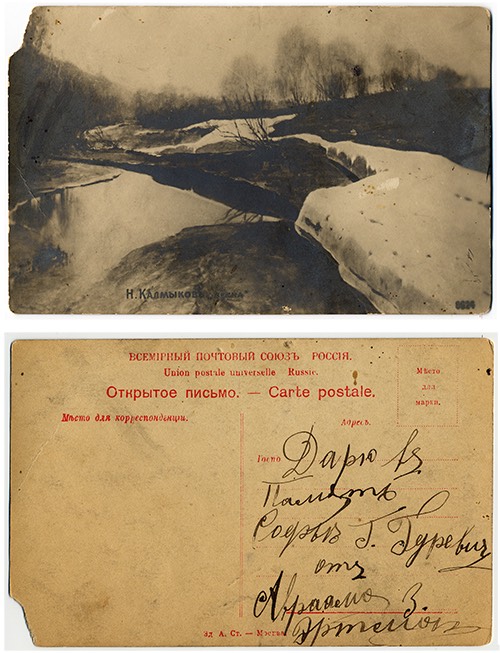 Н. Калмыковъ. Весна
6634
ВСЕМІРНЫЙ ПОЧТОВЫЙ СОЮЗЪ РОССІЯ.
Union postale universelle Russie.
Открытое письмо. — Carte postale.
Мѣсто для марки.
Мѣсто для корреспонденціи.
Адресъ.
Госпо
Дарю въ
Память
Софьѣ Г. Гуревичъ
отъ
Авраама З.
А. Ст. — Москва